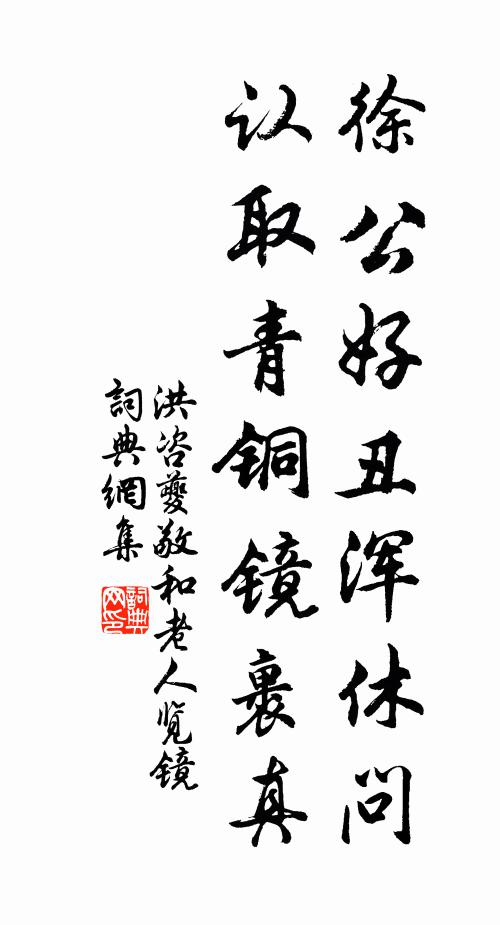 徐公好丑浑休问
认取青铜镜裹真
洪咨夔敬和老人览镜
詞典網集
詞典网印